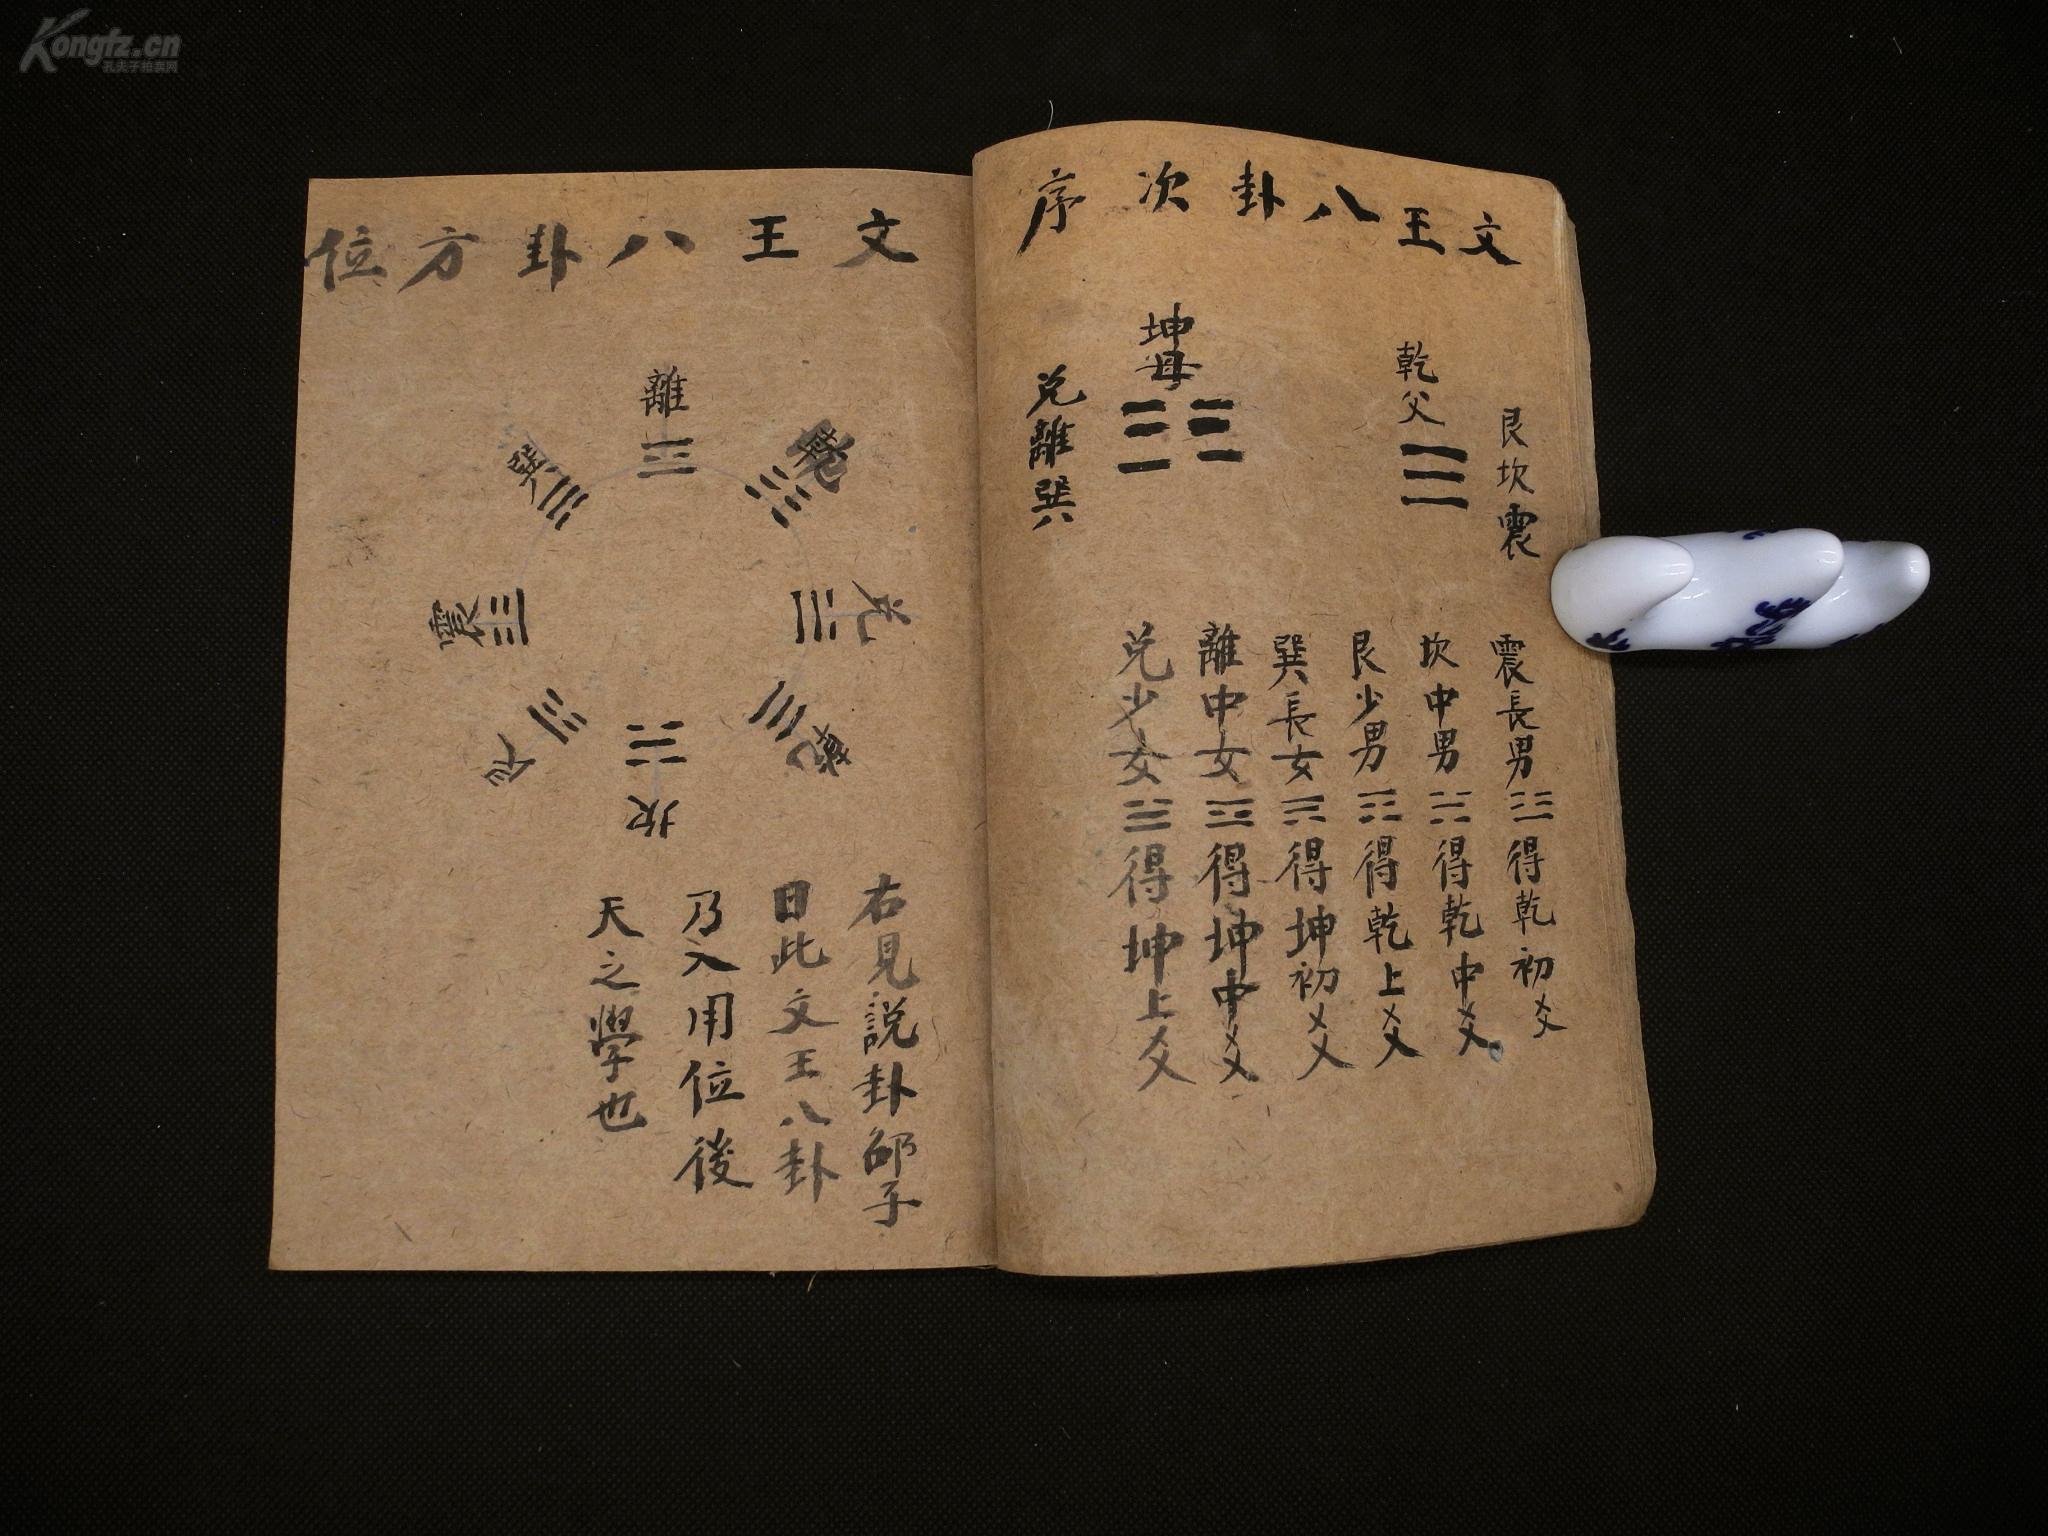 文王八卦次序
艮坎震
乾父
坤母
兑離巽
震長男☳得乾初爻
坎中男☵得乾中爻
艮少男☶得乾上爻
巽長女☴得坤初爻
離中女☲得坤中爻
兑少女☱得坤上爻
文王八卦方位
離
兑
乾
坎
震
巽
右見説卦邵子
曰此文王八卦
乃入用位後
天之學也
Kongfz.cn
孔夫子拍卖网